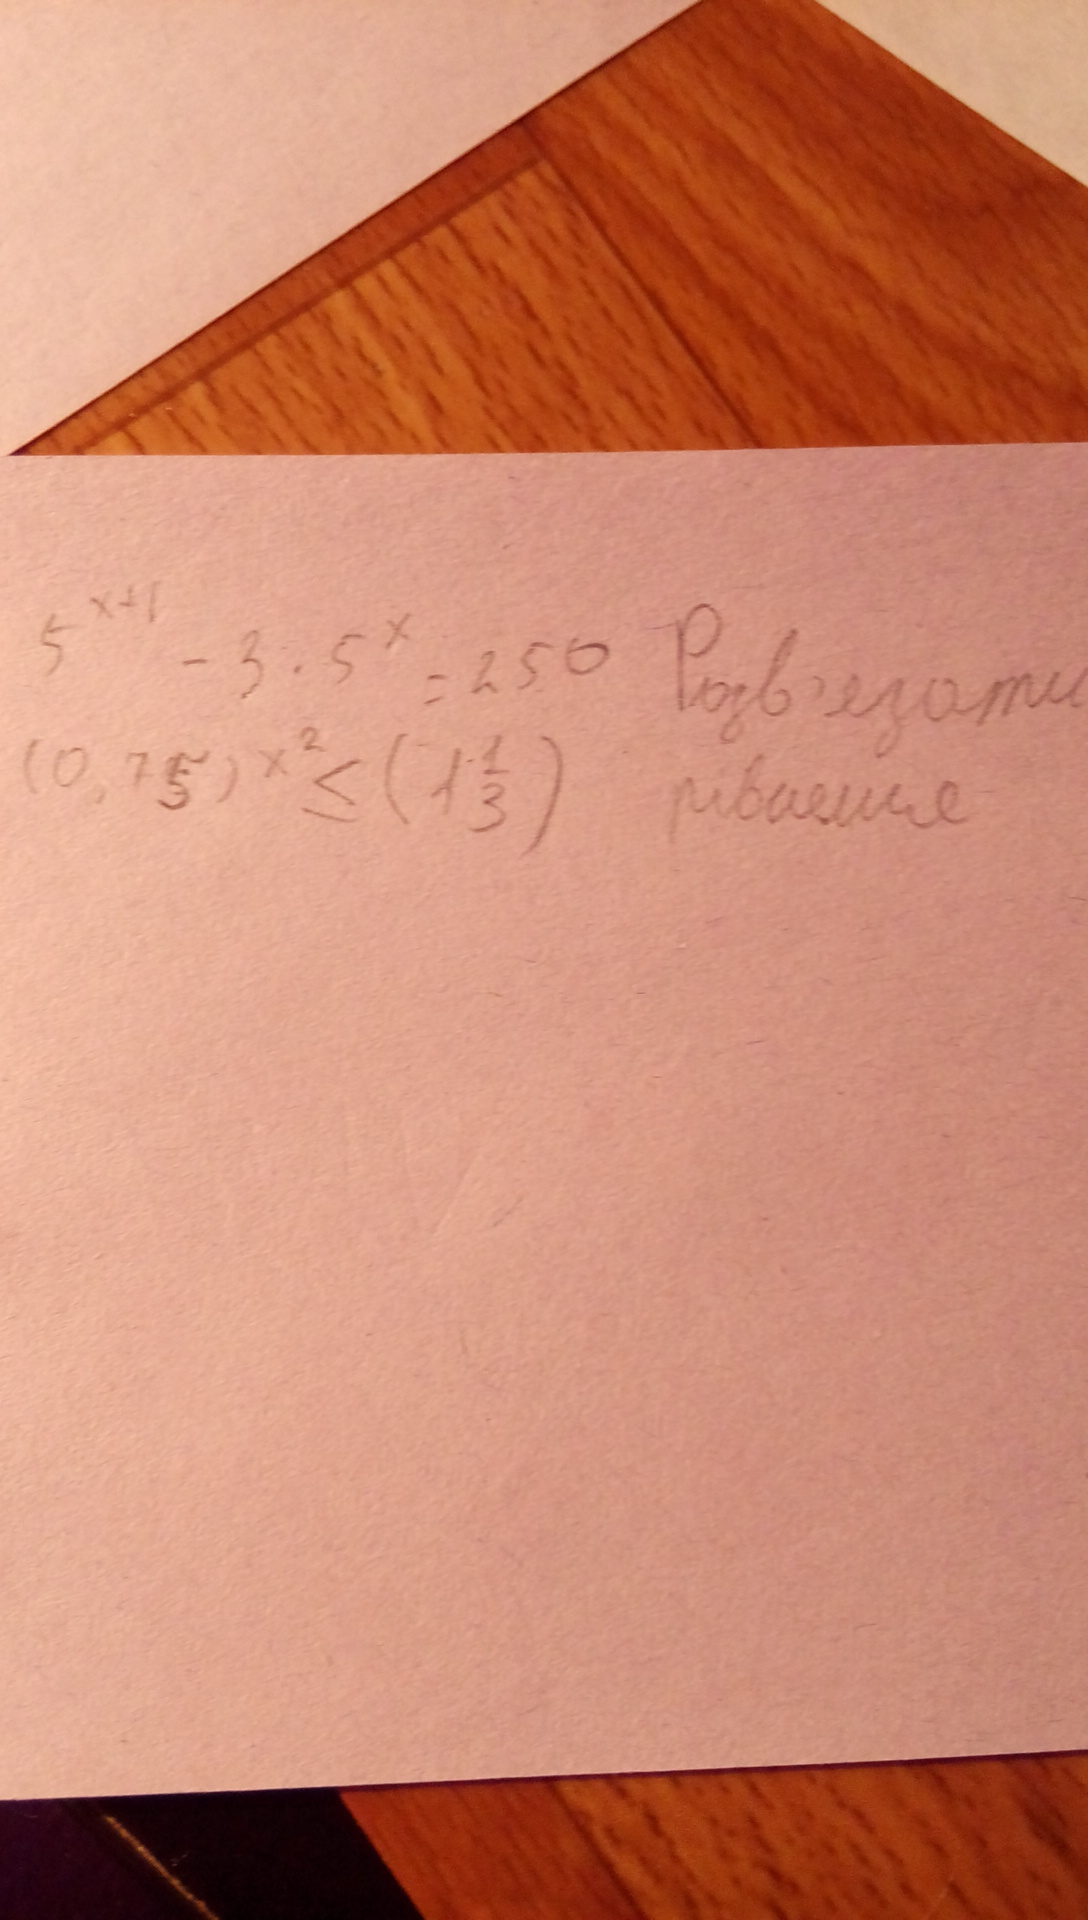 5^{x+1} - 3 · 5^x = 250 Розв'язати
(0,75)^{x^2} ≤ (1 1/3) рівняння